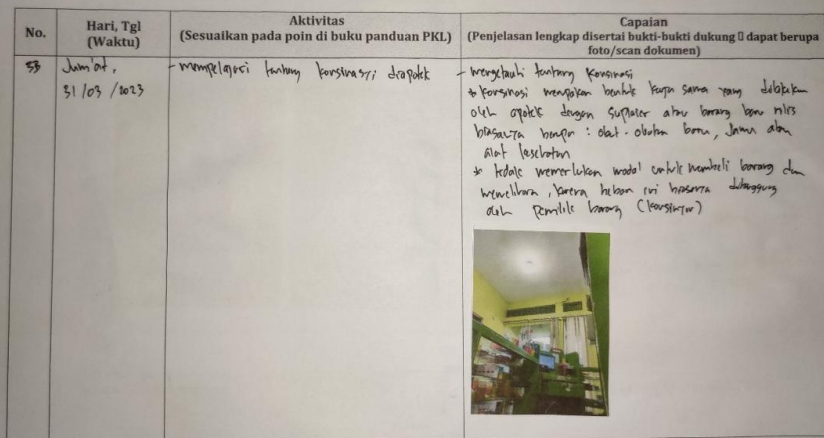 No.
Hari, Tgl
(Waktu)
Aktivitas
(Sesuaikan pada poin di buku panduan PKL)
Capaian
(Penjelasan lengkap disertai bukti-bukti dukung  dapat berupa
foto/scan dokumen)
53
Jum'at,
31/03/2023
- mempelajari tentang konsinasi diapotek
- mengetauhi tentang Konsinasi
* konsinasi merupakan bentuk kerja sama yang dilakukan
oleh apotek dengan suplaier atau barang baru rilis
biasanya berupa : obat-obatan baru, Jamu atau
alat kesehatan
* tidak memerlukan modal untuk membeli barang dan
memelihara, karena beban ini biasanya ditanggung
oleh pemilik barang (konsinyor)